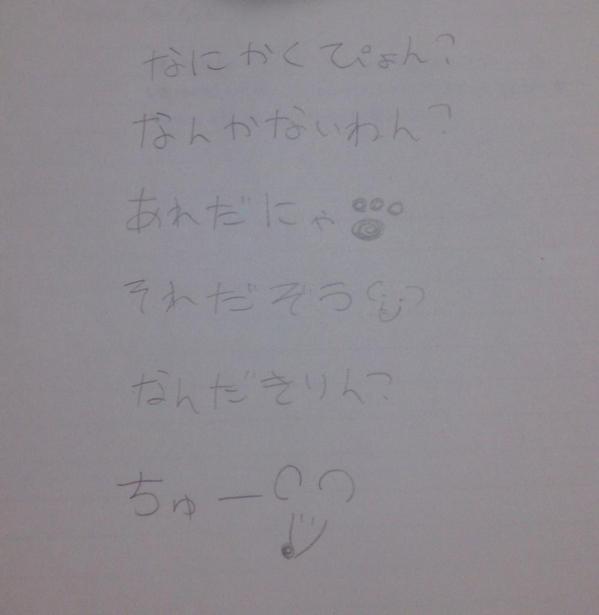 なにかくぴょん?
なんかないわん?
あれだにゃ
それだぞう
なんだきりん?
ちゅー